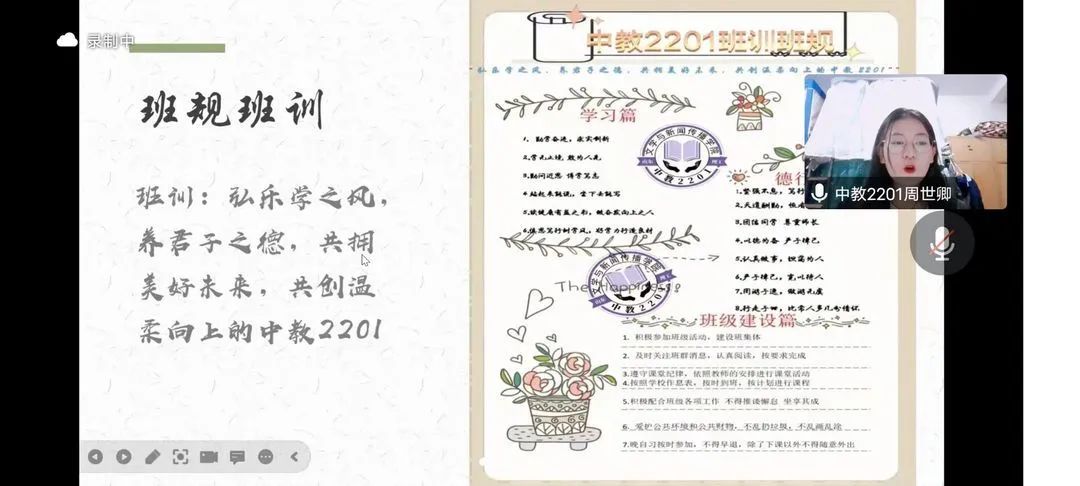 录制中
班规班训
班训：弘乐学之风，
养君子之德，共拥
美好未来，共创温
柔向上的中教2201
中教2201班训班规
弘乐学之风、养君子之德、共拥美好未来、共创温柔向上的中教2201
学习篇
1、勤学奋进，求实创新
2.学无止境 敢为人先
3.勤问近思 博学笃志
4.站起来能说，坐下去能写
5.读健康有益之书，做奋发向上之人
文学与新闻传播学院
中教2201
德行
1.坚强不息，笃行
2.天道酬勤，
3.团结同学 尊重师长
4.以德为备 严于律己
5.认真做事，
6.严于律己，宽以待人
文学与新闻传播学院
中教2201
The Happiness
班级建设篇
1. 积极参加班级活动，建设班集体
2. 及时关注班群消息，认真阅读，按要求完成
3.遵守课堂纪律，依照教师的安排进行课堂活动
4.按照学校作息表，按时到班，按计划进行课程
5.积极配合班级各项工作 不得推诿懈怠 坐享其成
6. 爱护公共环境和公共财物，不乱扔垃圾，不乱画乱涂
7.晚自习按时参加，不得早退，除了下课以外不得随意外出
中教2201周世卿